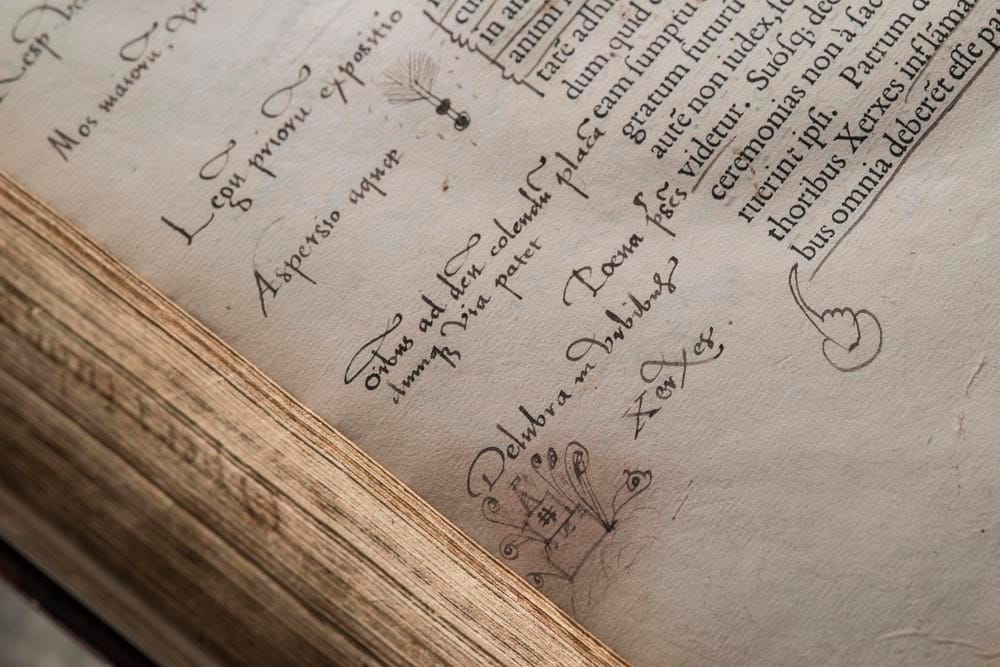 Mos maiorū. Vt
Legū priorū expositio
Aspersio aquae
Oībus ad deū colendū placā
dumq; Via patet
Poena
Delubra in Vrbibus
Xerxes.
in an
animi
tarē adhi
dum, quid
eam sumptu
gratum futurū
autē non iudex,
videtur. Suósq; deo
ceremonias non à sac
ruerint ipsi. Patrum
thoribus Xerxes inflāma
bus omnia deberēt esse pa